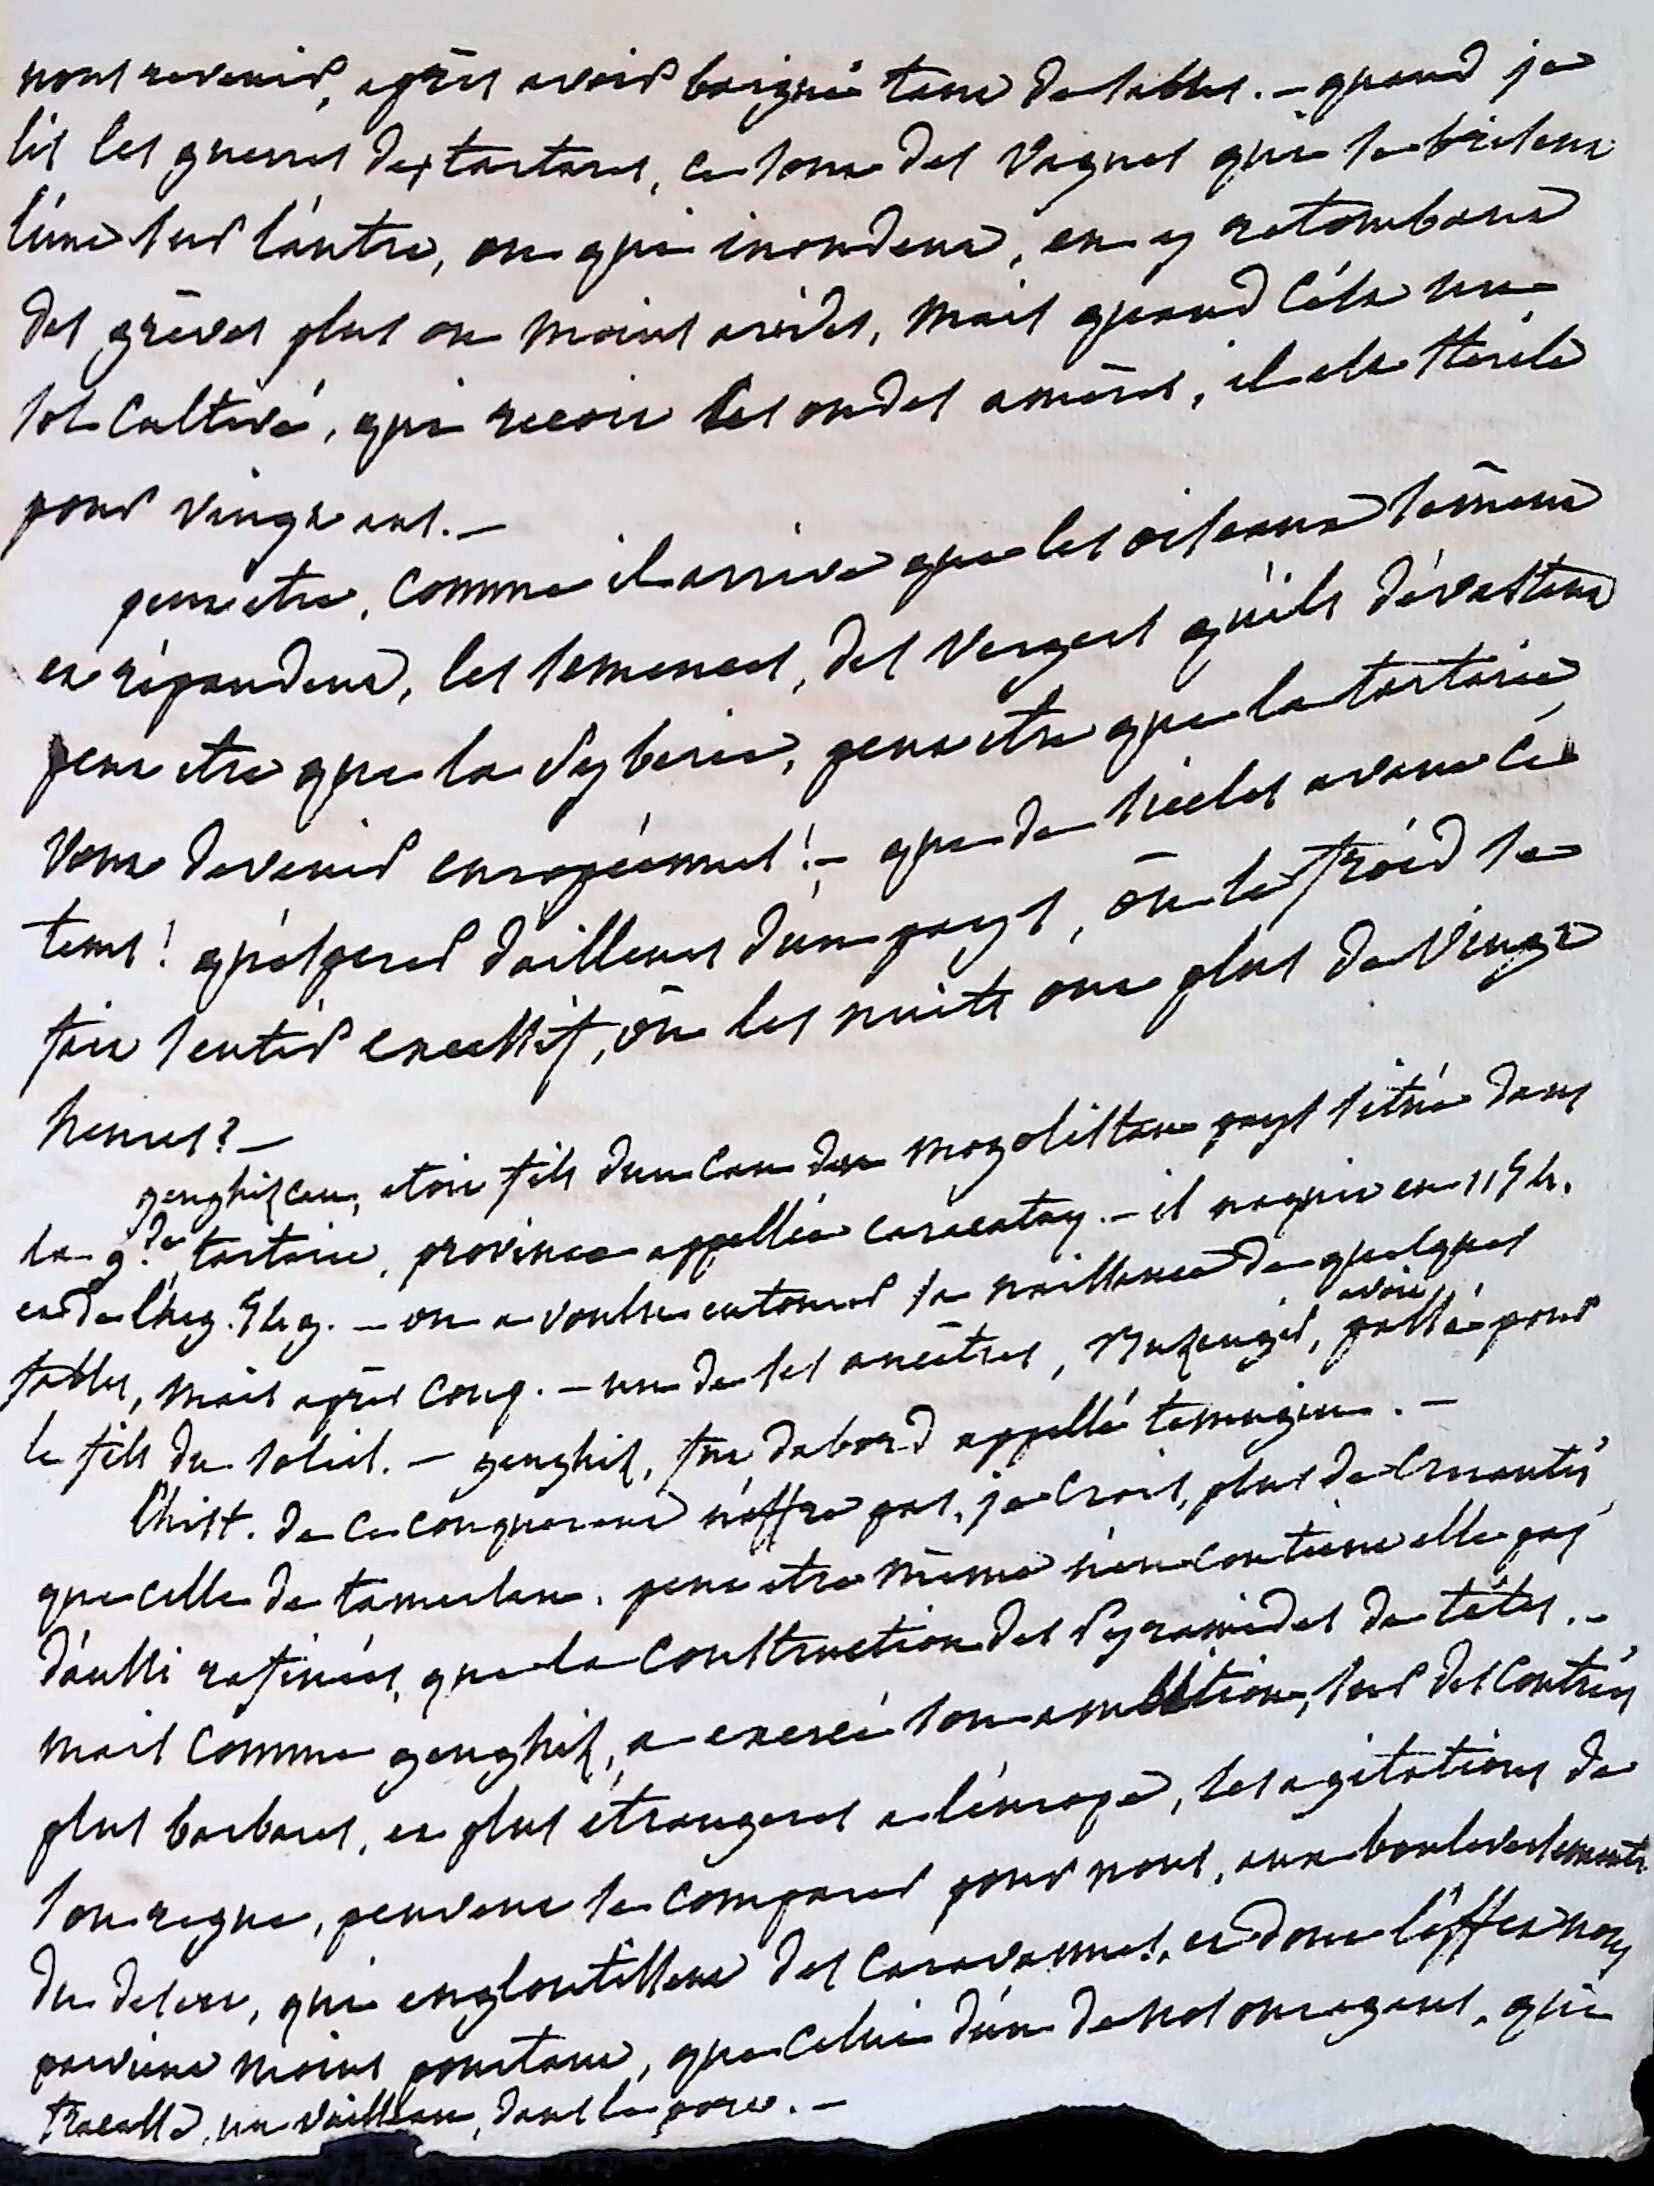 nous revenir, après avoir baigné tant de sables. – quand je
lis les guerres des tartares, ce sont des vagues qui se brisent
l'une sur l'autre, ou qui inondent, en y retombant
des grèves plus ou moins arides, mais quand c'est un
sol cultivé, qui recoit les ondes amères, il est sterile
pour vingt ans. –
peut etre, comme il arrive que les oiseaux sèment
et répandent, les semences, des vergers qu'ils dévastent
peut etre que la Syberie, peut etre que la tartarie
vont devenir européennes! – que de siecles avant ce
tems! qu'esperer d'ailleurs d'un pays, où le froid se
fait sentir excessif, où les nuits ont plus de vingt
heures? –
genghizcan, etoit fils d'un can du mogolistan pays situé dans
la g.de tartarie, province appellée caracatay. – il naquit en 1154.
et de l'heg. 549. – on a voulu entourer sa naissance de quelques
fables, mais après coup. – un de ses ancêtres, Buzengir, avoit passé pour
le fils du soleil. – genghiz, fut d'abord appellé temugin. –
l'hist. de ce conquerant n'offre pas, je crois, plus de cruautés
que celle de tamerlan. peut etre même n'en contient elle pas
d'aussi rafinées, que la construction des Pyramides de têtes. –
mais comme genghiz, a exercé son ambition, sur des contrées
plus barbares, et plus étrangeres a l'europe, les agitations de
son regne, peuvent se comparer pour nous, aux bouleversements
du desert, qui engloutissent des caravannes, et dont l'effet nous
parvient moins pourtant, que celui d'un de nos ouragans, qui
fracasse, un vaisseau, dans le port. –